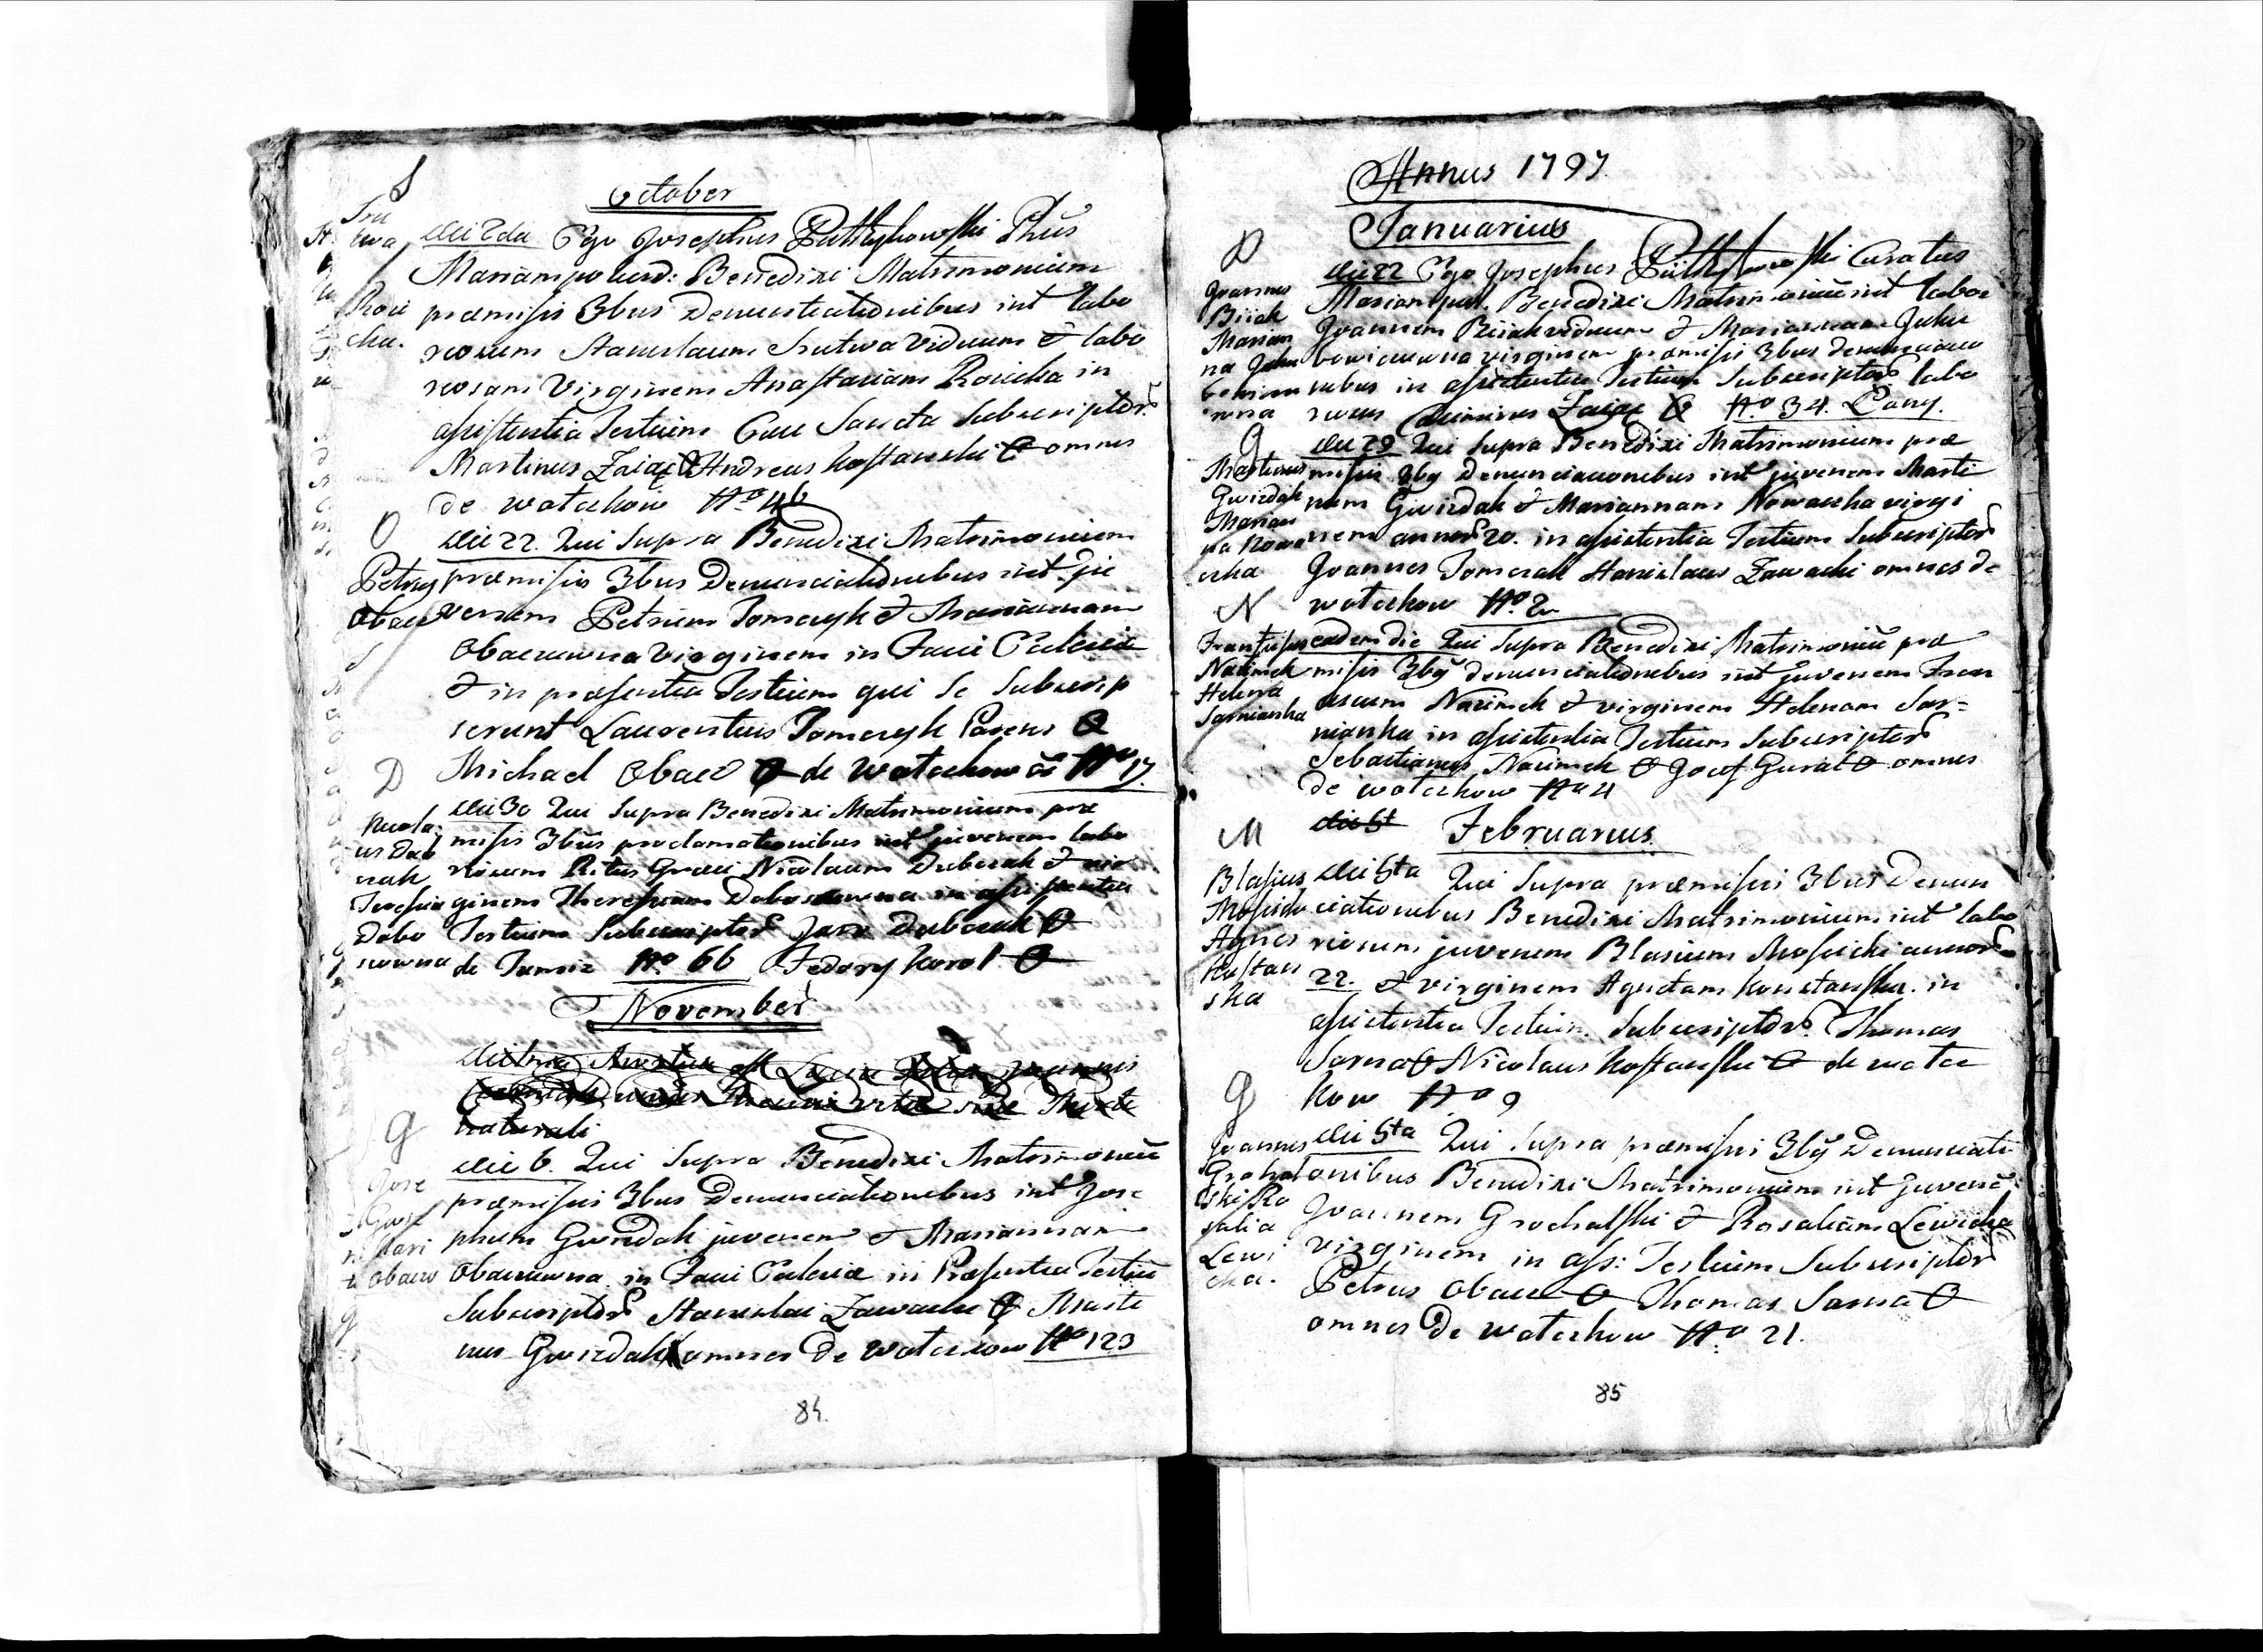 October
S
Sru
twa
Roui
cka.
die 2da Ego Josephus
Mariampolien: Benedixi Matrimonium
præmissis 3bus Denuntiationibus int labo
riosum Stanislaum Srutwa Viduum & labo
riosam Virginem Anastasiam Rouicka in
assistentia Testium Cruce Sancta Subscriptor
Martinus Zaiąc & Andreas Kostanski omnes
de Wołczkow No 46
O
Petrus
Obacz
die 22. Qui Supra Benedixi Matrimonium
præmissis 3bus Denunciationibus int ju
venem Petrum Tomczyk & Mariannam
Obaczowna Virginem in Facie Ecclesiæ
& in præsentia Testium qui se Subscrip
serunt Laurentius Tomczyk Parens
Michael Obacz de Wołczkow No 17.
D
Nicola
us Dub
czak
Teresia
Dobo
szowna
die 30 Qui Supra Benedixi Matrimonium præ
missis 3bus proclamationibus int juvenem labo
riosum Ritus Græci Nicolaum Dubczak & vir
ginem Theresiam Doboszowna in assistentia
Testium Subscriptor Jan Dubczak
de Tumirz No 66 Fedory Korol
November
naturali
G
Jose
Gwizd
Mari
Obacz
die 6. Qui Supra Benedixi Matrimoniũ
præmissis 3bus Denunciationibus int Jose
phum Gwizdak juvenem & Mariannam
Obaczowna in Facie Ecclesiæ in Præsentia Testiũ
Subscriptor Stanislai Zawacki Marti
nus Gwizdak omnes de Wołczkow No 123
84.
Annus 1797.
Januarius
D
Joannes
Biiak
Marian
na Jaku
bowicz
owna
die 22 Ego Josephus Curatus
Mariampol. Benedixi Matrimoniũ int labor
Joannem Biiak viduum & Mariannam Jaku
bowiczowna virginem præmissis 3bus denunciatio
nibus in assistentia Testium Subscriptor labo
riosus Zaiąc No 34. Łany.
G
Martinus
Gwizdak
Marian
na Nowa
cka
die 29 Qui Supra Benedixi Matrimonium præ
missis 3bg Denunciationibus int juvenem Marti
num Gwizdak & Mariannam Nowacka virgi
nem annor 20. in assistentia Testium Subscriptor
Joannes Tomczak Stanislaus Zawacki omnes de
wołczkow No 2
N
Franciscus
Naiimek
Helena
Sarnianka
eadem die Qui Supra Benedixi Matrimoniũ præ
missis 3bg denunciationibus int juvenem Fran
ciscum Naiimek & virginem Helenam Sar=
nianka in assistentia Testium Subscriptor
Sebastianus Naiimek & Jozef Gural omnes
de wołczkow No 4
die 5t
Februarius
M
Blasius
Mosicki
Agnes
Kostan
ska
die 5ta Qui Supra præmissis 3bus Denun
ciationibus Benedixi Matrimonium int labo
riosum juvenem Blasium Mosicki annor
22. & virginem Agnetam Konstanska in
assistentia Testium Subscriptor Thomas
Sarna & Nicolaus Kostanski de wołcz
kow No 9
G
Joannes
Grohol
ski Ro
salia
Lewi
cka.
die 5ta Qui Supra præmissis 3bg Denunciati
onibus Benedixi Matrimonium int Juvenẽ
Joannem Grochalski & Rosaliam Lewicka
virginem in ass: Testium Subscriptor
Petrus Obacz Thomas Sarna
omnes de wołczkow No 21.
85